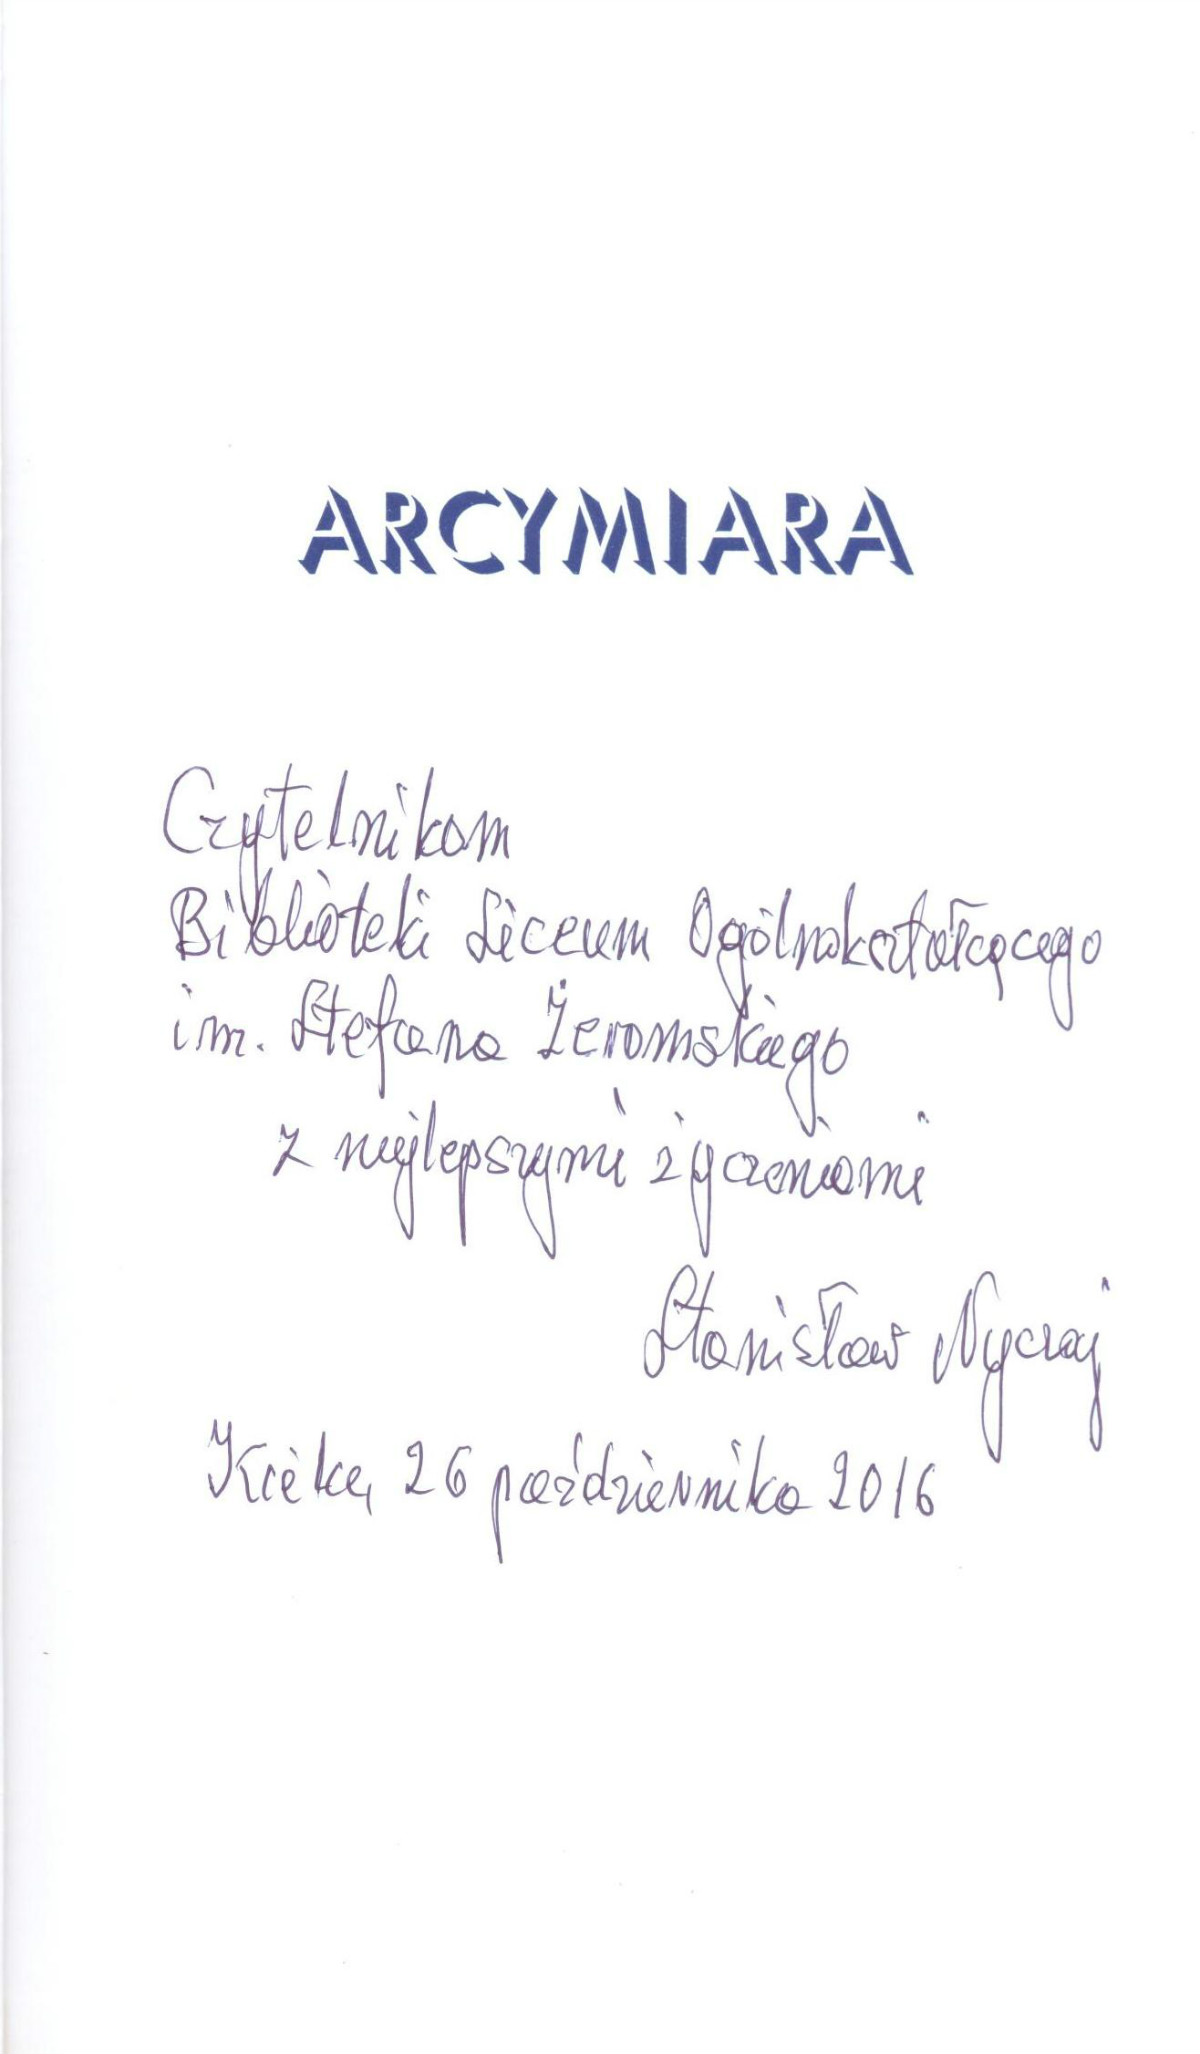 ARCYMIARA
Czytelnikom
Biblioteki Liceum Ogólnokształcącego
im. Stefana Żeromskiego
z najlepszymi życzeniami
Stanisław Nyczaj
Kielce, 26 października 2016